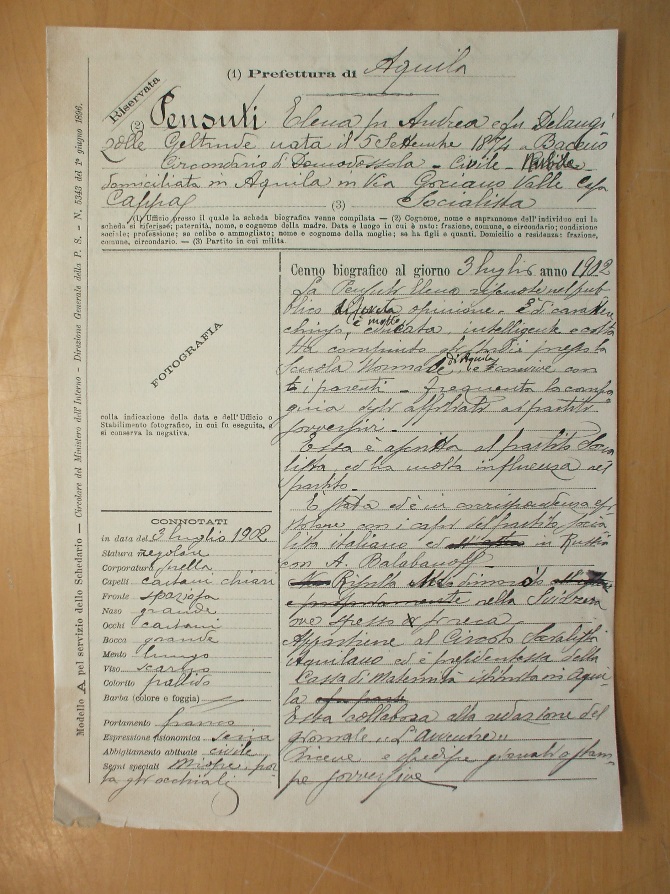 Modello A pel servizio dello Schedario — Circolare del Ministero dell'Interno — Direzione Generale della P. S. — N. 5343 del 1º giugno 1896.
Riservata
(1) Prefettura di Aquila
(2) Pensuti Elena fu Andrea e fu Delangi
zolle Geltrude nata il 5 Settembre a Baceno
Circondario di Domodossola - Civile - Nubile
domiciliata in Aquila in Via Casa
Cappa (3) Socialista
(1) Ufficio presso il quale la scheda biografica venne compilata — (2) Cognome, nome e soprannome dell'individuo cui la
scheda si riferisce; paternità, nome, e cognome della madre. Data e luogo in cui è nato: frazione, comune, e circondario; condizione
sociale; professione; se celibe o ammogliato; nome e cognome della moglie; se ha figli e quanti. Domicilio e residenza: frazione,
comune, circondario. — (3) Partito in cui milita.
FOTOGRAFIA
colla indicazione della data e dell'Ufficio o
Stabilimento fotografico, in cui fu eseguita, e
si conserva la negativa.
CONNOTATI
in data del 3 luglio 1902
Statura regolare
Corporatura snella
Capelli castani chiari
Fronte spaziosa
Naso grande
Occhi castani
Bocca grande
Mento lungo
Viso scarno
Colorito pallido
Barba (colore e foggia)
Portamento franco
Espressione fisionomica seria
Abbigliamento abituale civile
Segni speciali Miope, por
ta gli occhiali
Cenno biografico al giorno 3 luglio anno 1902
La Pensuti Elena riscuote nel pub
blico opinione. È di caratte
è molto
educata, intelligente e colta
Ha compiuto gli studi presso la
di Aquila
Scuola Normale, e convive con
i parenti. Frequenta la compa
gnia degli affiliati ai partiti
sovversivi.
Essa è ascritta al partito Socia
lista, ed ha molta influenza nel
partito.
È stata ed è in corrispondenza epi
stolare con i capi del partito socia
lista italiano ed in Russia
con A. Balabanoff.
Risulta dimorò
nella Svizzera
ove spesso si reca.
Appartiene al Circolo Socialista
Aquilano ed è presidentessa della
Cassa di Maternità istituita in Aqui
la
Essa collabora alla redazione del
giornale "L'Avvenire"
Riceve e spedisce giornali o stam
pe sovversive